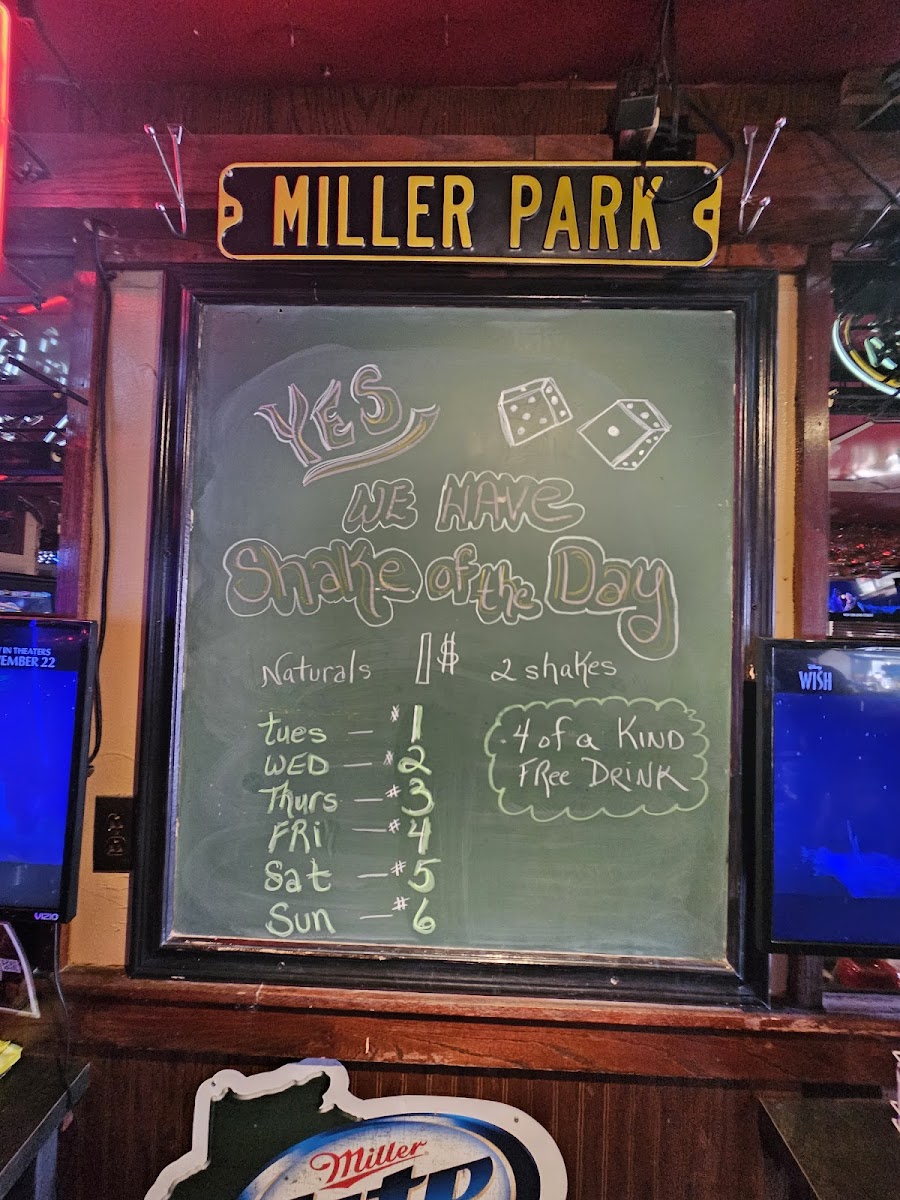 MILLER PARK
YES
WE HAVE
Shake of the Day
Naturals 1$ 2 shakes
Tues — #1
WED — #2
Thurs — #3
FRi — #4
Sat — #5
Sun — #6
4 of a KIND
FRee DRINK
IN THEATERS
VEMBER 22
VIZIO
Disney
WISH
Miller